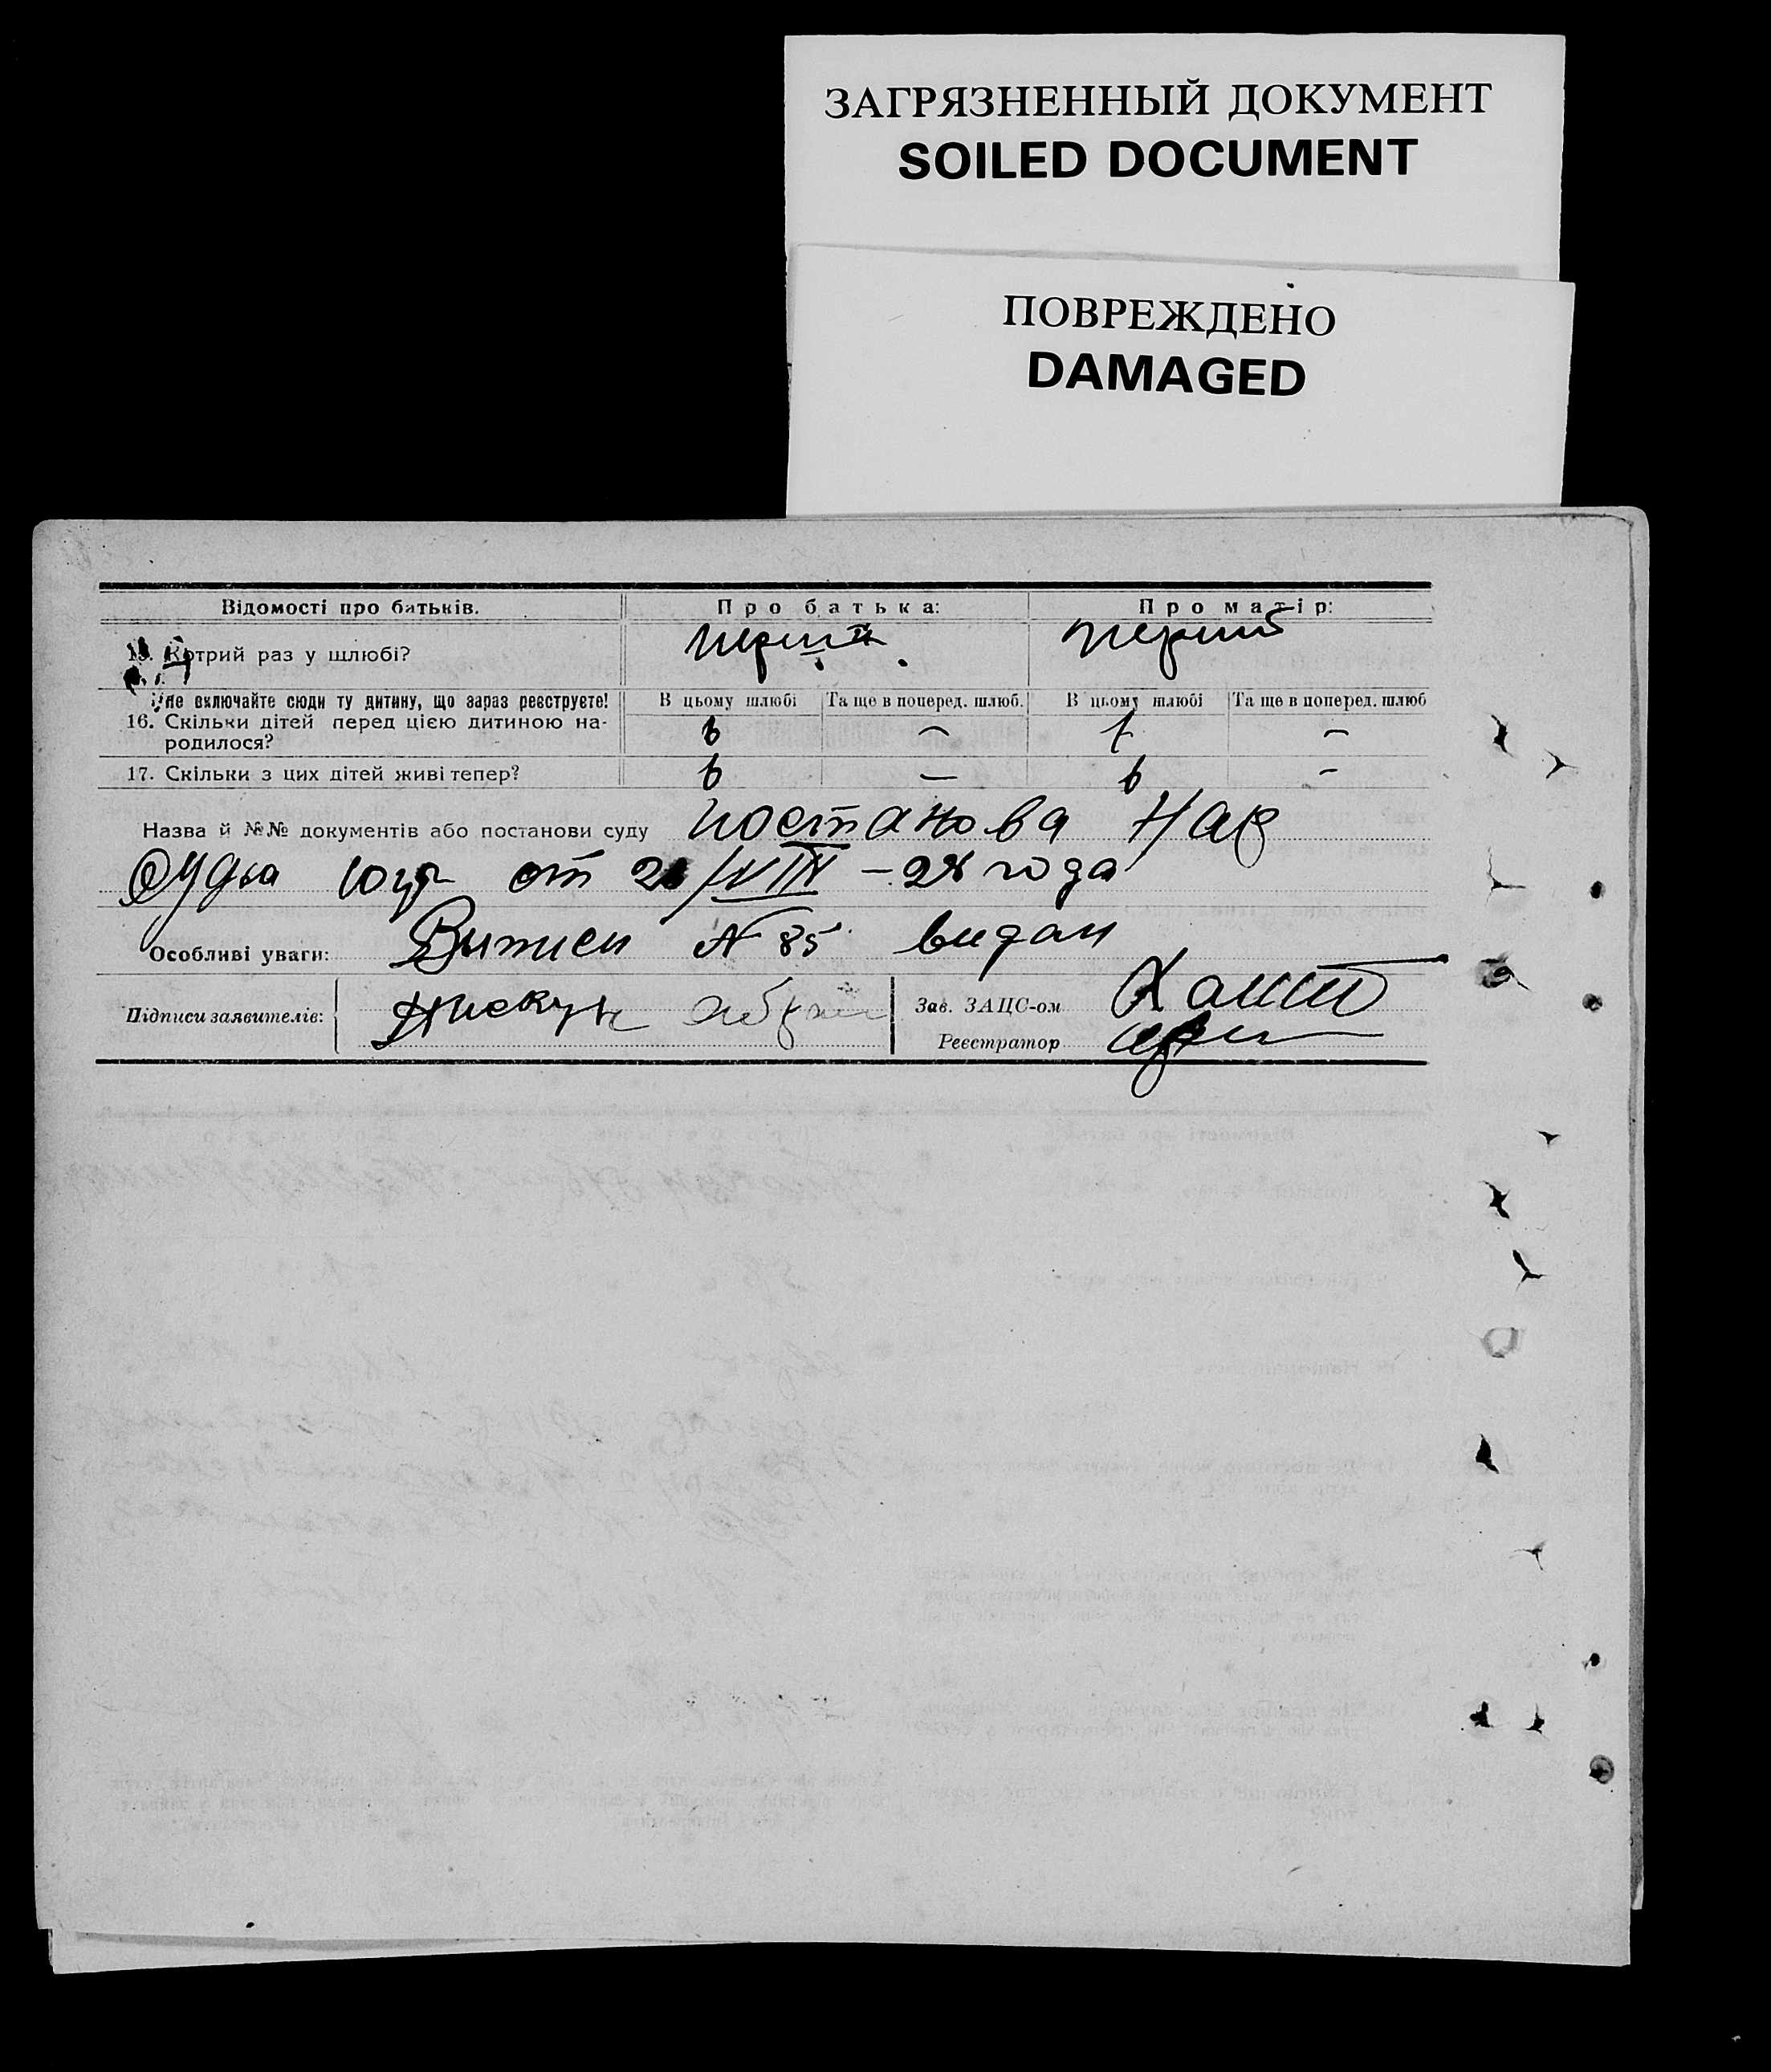 ЗАГРЯЗНЕННЫЙ ДОКУМЕНТ
SOILED DOCUMENT
ПОВРЕЖДЕНО
DAMAGED
Відомості про батьків. Про батька: Про матір:
15. Котрий раз у шлюбі? перший перший
Не включайте сюди ту дитину, що зараз реєструєте! В цьому шлюбі Та ще в поперед. шлюб. В цьому шлюбі Та ще в поперед. шлюб
16. Скільки дітей перед цією дитиною на-
родилося? 6 — 7 —
17. Скільки з цих дітей живі тепер? 6 — 6 —
Назва й №№ документів або постанови суду постанова Нар
Судьа от /VIII – 28 года
Особливі уваги: Витиси № 85 видан
Підписи заявителів: Зав. ЗАЦС-ом
Реєстратор